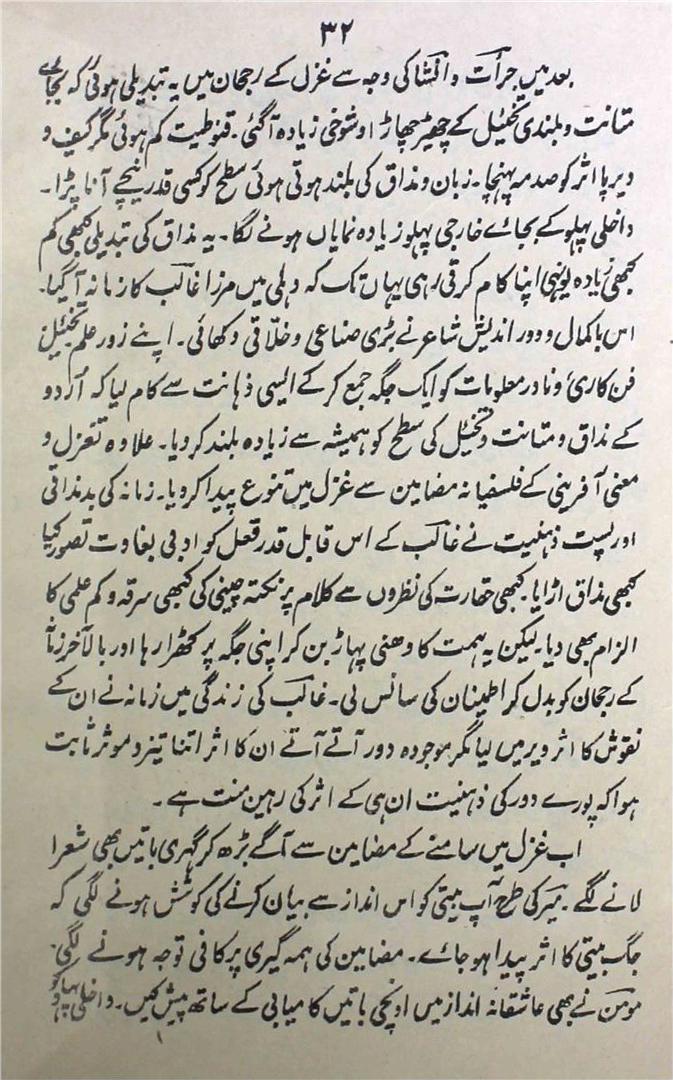 ۳۲
بعد میں جرأت و انشا کی وجہ سے غزل کے رجحان میں یہ تبدیلی ہوئی کہ بجائے
متانت و بلندی تخئیل کے چھیڑ چھاڑ اور شوخی زیادہ آگئی۔ قنوطیت کم ہوئی مگر کیف و
دیرپا اثر کو صدمہ پہنچا۔ زبان و مذاق کی بلند ہوتی ہوئی سطح کو کسی قدر نیچے آنا پڑا۔
داخلی پہلو کے بجائے خارجی پہلو زیادہ نمایاں ہونے لگا۔ یہ مذاق کی تبدیلی کبھی کم
کبھی زیادہ یونہی اپنا کام کرتی رہی یہاں تک کہ دہلی میں مرزا غالب کا زمانہ آگیا۔
اس باکمال و دور اندیش شاعر نے بڑی صناعی و خلاقی دکھائی۔ اپنے زور علم تخئیل
فن کاری و نادر معلومات کو ایک جگہ جمع کر کے ایسی ذہانت سے کام لیا کہ اُردو
کے مذاق و متانت و تخئیل کی سطح کو ہمیشہ سے زیادہ بلند کر دیا۔ علاوہ تغزل و
معنی آفرینی کے فلسفیانہ مضامین سے غزل میں تنوع پیدا کر دیا۔ زمانہ کی بدمذاقی
اور پست ذہنیت نے غالب کے اس قابل قدر فعل کو ادبی بغاوت تصور کیا
کبھی مذاق اڑایا۔ کبھی حقارت کی نظروں سے کلام پر نکتہ چینی کی کبھی سرقہ و کم علمی کا
الزام بھی دیا۔ لیکن یہ ہمت کا دھنی پہاڑ بن کر اپنی جگہ پر کھڑا رہا اور بالآخر زمانہ
کے رجحان کو بدل کر اطمینان کی سانس لی۔ غالب کی زندگی میں زمانہ نے ان کے
نقوش کا اثر دیر میں لیا مگر موجودہ دور آتے آتے ان کا اثر اتنا تیز و موثر ثابت
ہوا کہ پورے دور کی ذہنیت ان ہی کے اثر کی رہین منت ہے۔
اب غزل میں سامنے کے مضامین سے آگے بڑھ کر گہری باتیں بھی شعرا
لانے لگے۔ میر کی طرح آپ بیتی کو اس انداز سے بیان کرنے کی کوشش ہونے لگی کہ
جگ بیتی کا اثر پیدا ہو جائے۔ مضامین کی ہمہ گیری پر کافی توجہ ہونے لگی۔
مومن نے بھی عاشقانہ انداز میں اونچی باتیں کامیابی کے ساتھ پیش کیں۔ داخلی پہلو کو